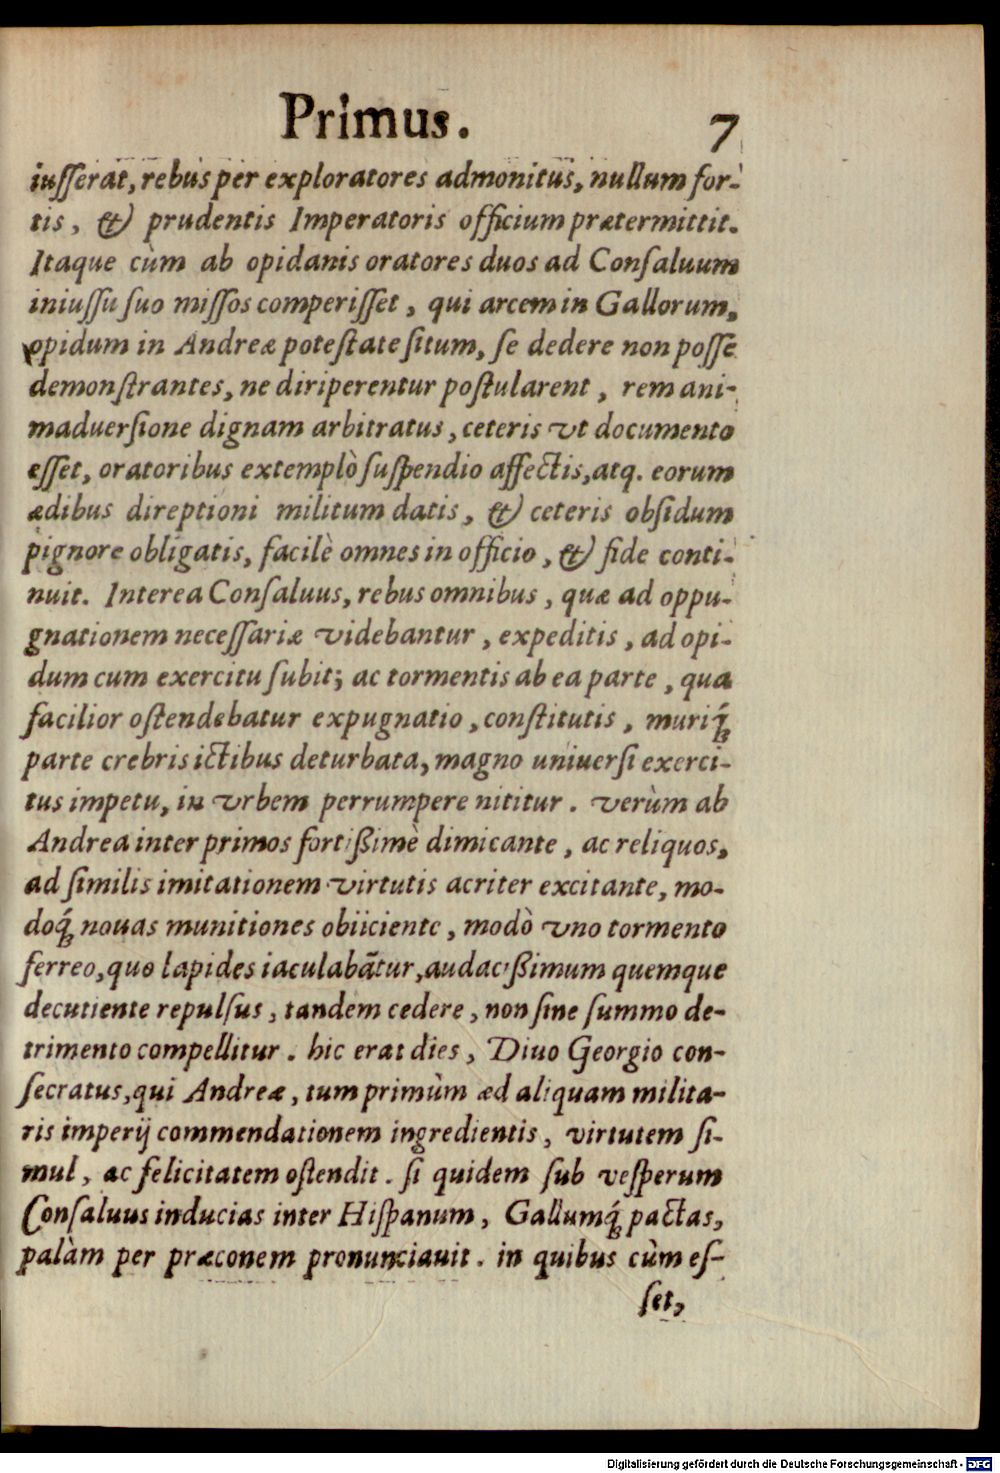 Primus. 7
iusserat, rebus per exploratores admonitus, nullum for-
tis, & prudentis Imperatoris officium prætermittit.
Itaque cùm ab opidanis oratores duos ad Consaluum
iniussu suo missos comperisset, qui arcem in Gallorum,
opidum in Andreæ potestate situm, se dedere non posse
demonstrantes, ne diriperentur postularent, rem ani-
maduersione dignam arbitratus, ceteris vt documento
esset, oratoribus extemplò suspendio affectis, atq. eorum
ædibus direptioni militum datis, & ceteris obsidum
pignore obligatis, facilè omnes in officio, & fide conti-
nuit. Interea Consaluus, rebus omnibus, quæ ad oppu-
gnationem necessariæ videbantur, expeditis, ad opi-
dum cum exercitu subit; ac tormentis ab ea parte, qua
facilior ostendebatur expugnatio, constitutis, muriq́;
parte crebris ictibus deturbata, magno uniuersi exerci-
tus impetu, in vrbem perrumpere nititur. verùm ab
Andrea inter primos fortißimè dimicante, ac reliquos,
ad similis imitationem virtutis acriter excitante, mo-
doq́; nouas munitiones obiiciente, modò vno tormento
ferreo, quo lapides iaculabãtur, audacißimum quemque
decutiente repulsus, tandem cedere, non sine summo de-
trimento compellitur. hic erat dies, Diuo Georgio con-
secratus, qui Andreæ, tum primùm æd aliquam milita-
ris imperij commendationem ingredientis, virtutem si-
mul, ac felicitatem ostendit. si quidem sub vesperum
Consaluus inducias inter Hispanum, Gallumq́; pactas,
palàm per præconem pronunciauit. in quibus cùm es-
set,
Digitalisierung gefördert durch die Deutsche Forschungsgemeinschaft - DFG